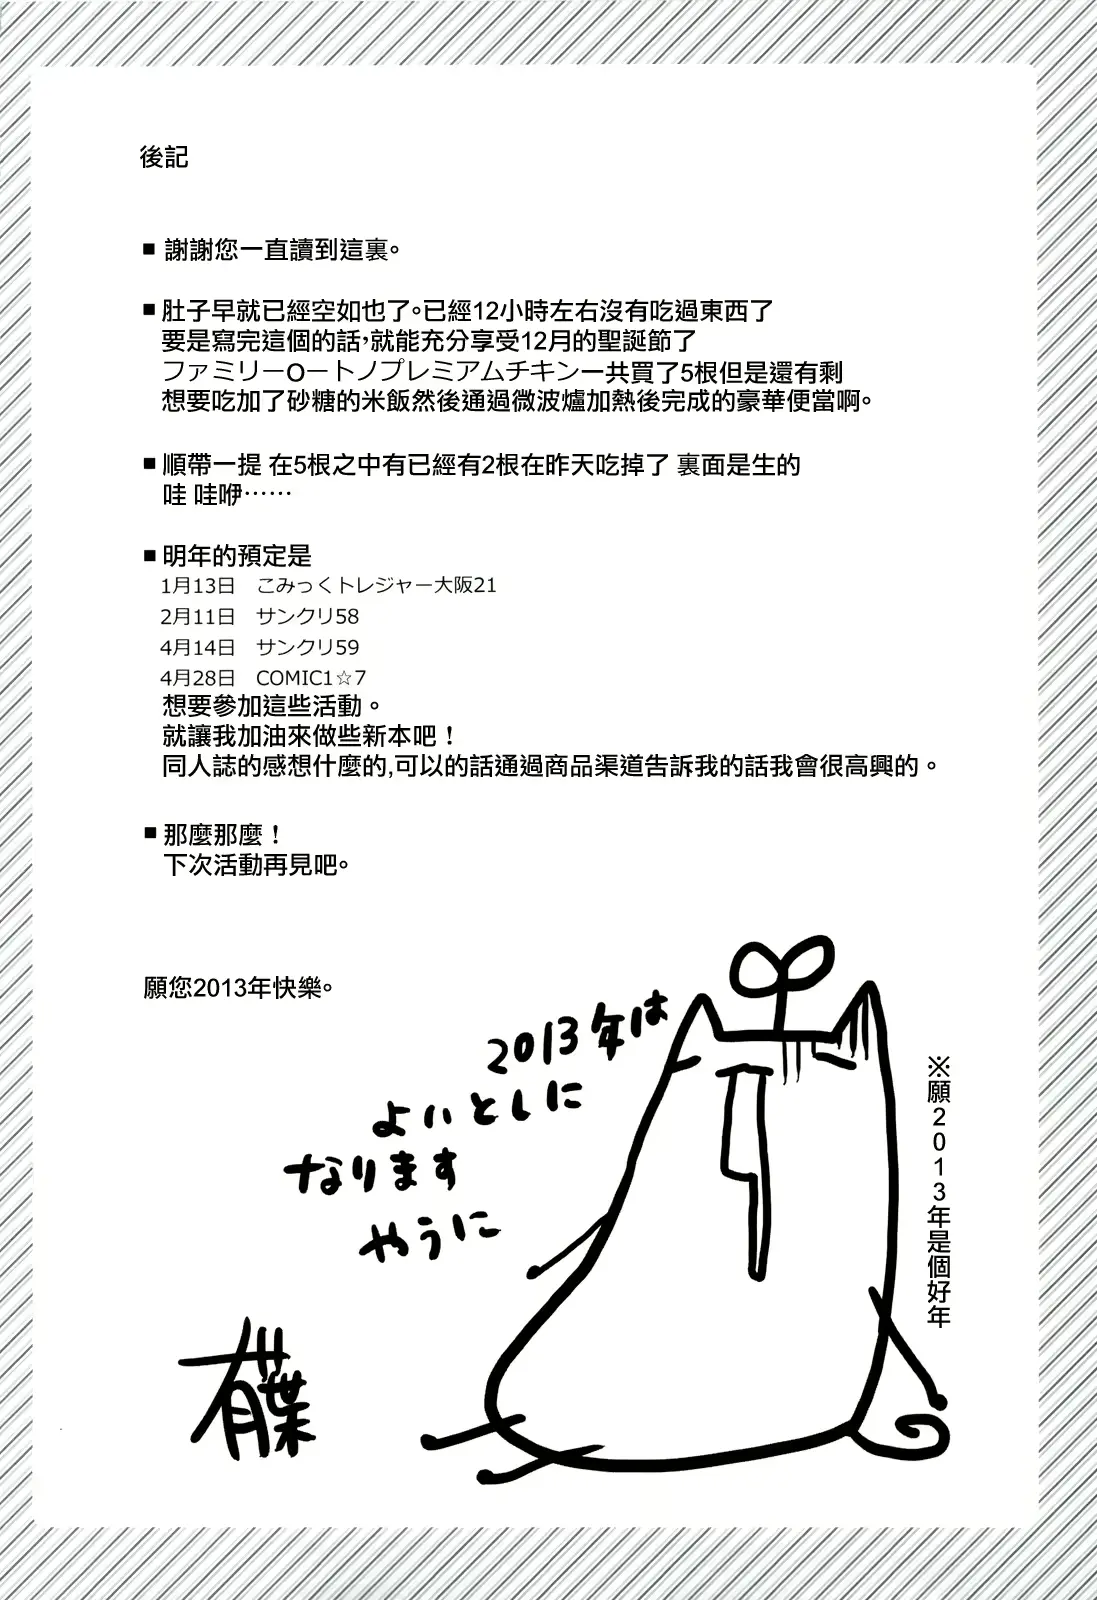 後記
■ 謝謝您一直讀到這裏。
■ 肚子早就已經空如也了。已經12小時左右沒有吃過東西了
要是寫完這個的話,就能充分享受12月的聖誕節了
ファミリーOートノプレミアムチキン一共買了5根但是還有剩
想要吃加了砂糖的米飯然後通過微波爐加熱後完成的豪華便當啊。
■ 順帶一提 在5根之中有已經有2根在昨天吃掉了 裏面是生的
哇 哇咿……
■ 明年的預定是
1月13日 こみっくトレジャー大阪21
2月11日 サンクリ58
4月14日 サンクリ59
4月28日 COMIC1☆7
想要參加這些活動。
就讓我加油來做些新本吧！
同人誌的感想什麼的,可以的話通過商品渠道告訴我的話我會很高興的。
■ 那麼那麼！
下次活動再見吧。
願您2013年快樂。
2013年は
よいとしに
なります
やうに
※願2013年是個好年
有葉